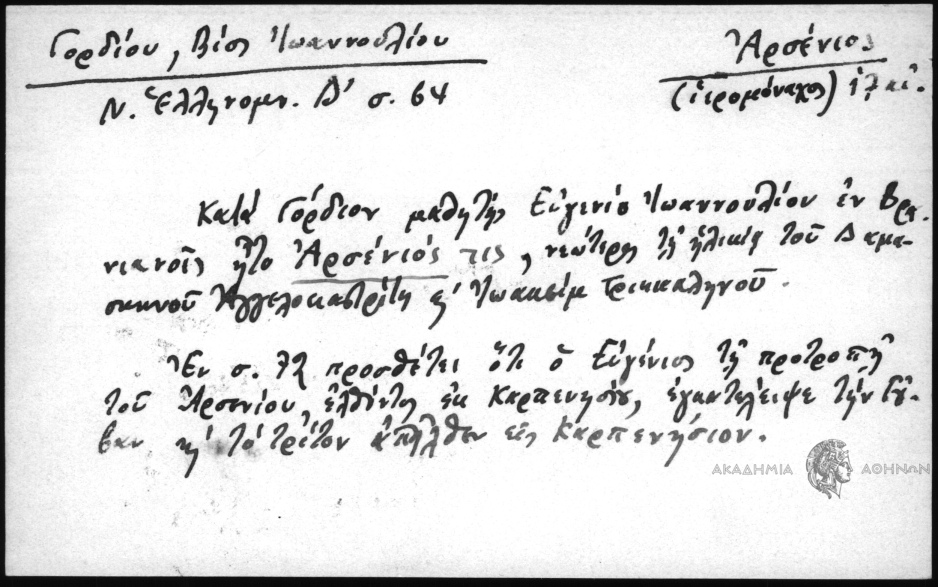 Γορδίου, Βίος Ἰωαννουλίου
Ἀρσένιος
Ν. Ἑλληνομν. Δ' σ. 64
(ἱερομόναχος) 17 αἰ.
Κατὰ Γόρδιον μαθητὴς Εὐγενίου Ἰωαννουλίου ἐν Βρα-
νιανοῖς ἦτο Ἀρσένιός τις, νεώτερος τῇ ἡλικίᾳ τοῦ Δαμα-
σκηνοῦ Ἀγγελοκαστρίτη κ' Ἰωακεὶμ Τρικκαληνοῦ.
Ἐν σ. 72 προσθέτει ὅτι ὁ Εὐγένιος τῇ προτροπῇ
τοῦ Ἀρσενίου, ἐλθόντος ἐκ Καρπενησίου, ἐγκατέλειψε τὴν Γού-
βαν κ' τὸ τρίτον ἀπῆλθεν εἰς Καρπενήσιον.
ΑΚΑΔΗΜΙΑ ΑΘΗΝΩΝ